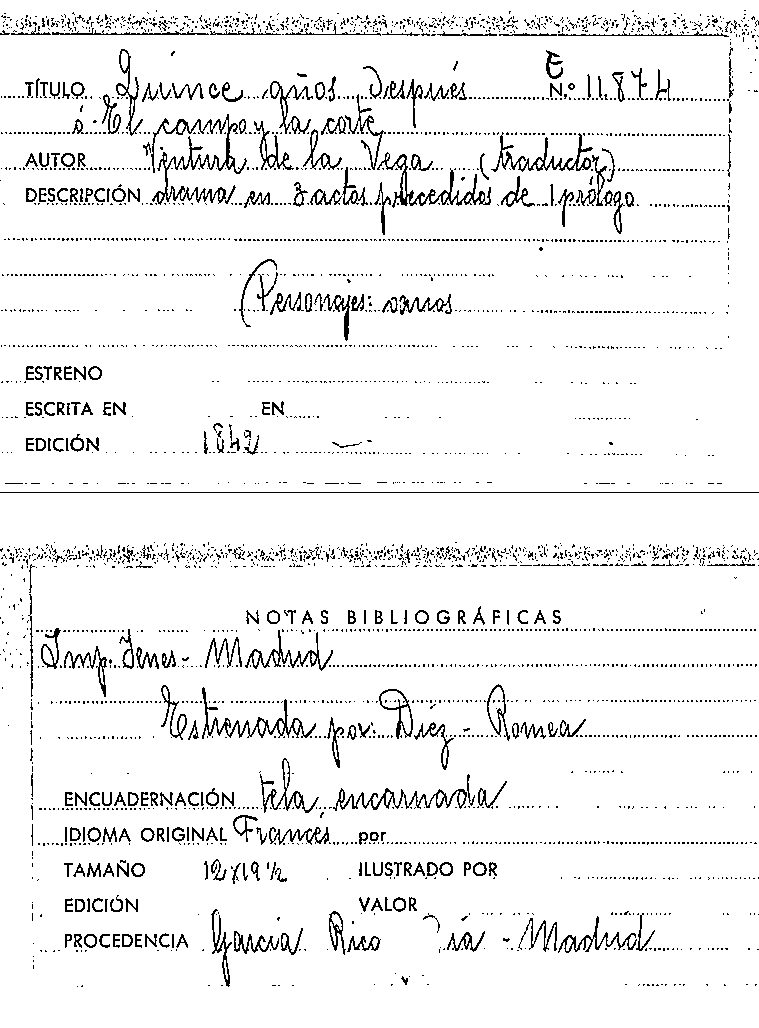 E
TÍTULO Quince años después N.º 11.874
ó - El campo y la corte
AUTOR Ventura de la Vega (traductor)
DESCRIPCIÓN drama en 3 actos precedidos de 1 prólogo
(Personajes: varios
ESTRENO
ESCRITA EN EN
EDICIÓN 1842
NOTAS BIBLIOGRÁFICAS
Imp. Yenes - Madrid
Estrenada por: Díez - Romea
ENCUADERNACIÓN tela encarnada
IDIOMA ORIGINAL Francés por
TAMAÑO 12x19 ½ ILUSTRADO POR
EDICIÓN VALOR
PROCEDENCIA García Rico - Madrid